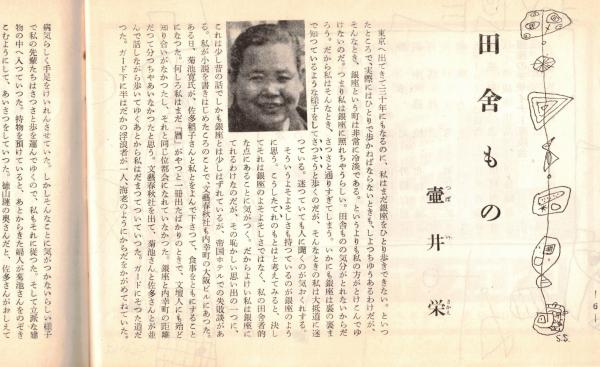 — 6 —
S.S.
田舎もの
壷井栄
つぼ い さかえ
東京へ出てきて三十年にもなるのに、私はまだ銀座をひとり歩きできない。といつ
たところで、実際にはひとりで歩かねばならないときも、しよつちゆうあるわけだが、
そんなとき、銀座という町は非常に冷淡である。というよりも私の方がとけこんでゆ
けないのだ。つまり私は銀座に照れちやうらしい。田舎ものの気分がとれないからだ
ろう。だから私はそんなとき、さつさと通りすぎてしまう。いかにも銀座は裏の裏ま
で知つているような様子をしてさつそうと歩くのだが、そんなときの私は大抵道に迷
つている。迷つていても人に聞くのが気おくれする。
そういうよそよそしさも持つているのが銀座のよう
に思う。こうしたてれのもとはと考えてみると、決し
てそれは銀座のよそよそしさではなく、私の田舎者的
な点にあることに気がつく。だからよけい私は銀座に
てれるわけなのだが、その恥かしい思い出の一つに、
これは少し昔の話でしかも銀座とは少しはずれているが、帝国ホテルでの失敗談があ
る。私が小説を書きはじめたころのことで、文藝春秋社も内幸町の大阪ビルにあつた。
ある日、菊池寛氏が、佐多稲子さんと私とをよんで下さつて、食事をともにすること
になつた。何しろ私はまだ「暦」がやつと一冊出たばかりのときで、文壇人にも殆ど
知り合いがなかつたし、それと同じ位都会になれていなかつた。銀座と内幸町の距離
だつて分つちやあいなかつたと思う。文藝春秋社を出て、菊池さんと佐多さんとが並
んで話しながら歩いてゆくあとから私はだまつてついていつた。ガードにそつた道だ
つた。ガード下にはだかの浮浪者が一人海老のようにからだをかがめてねていた。
病気らしく手足をけいれんさせていた。しかしそんなことに気がつかないらしい様子
で私の先輩たちはさつさと歩を運んでゆくので、私もそれに従つた。そして立派な建
物の中へ入つていつた。持物を預けていると、あとからきた婦人が菊池さんをのぞき
こむようにして、あいさつをしていつた。徳山璉の奥さんだと、佐多さんがおしえて